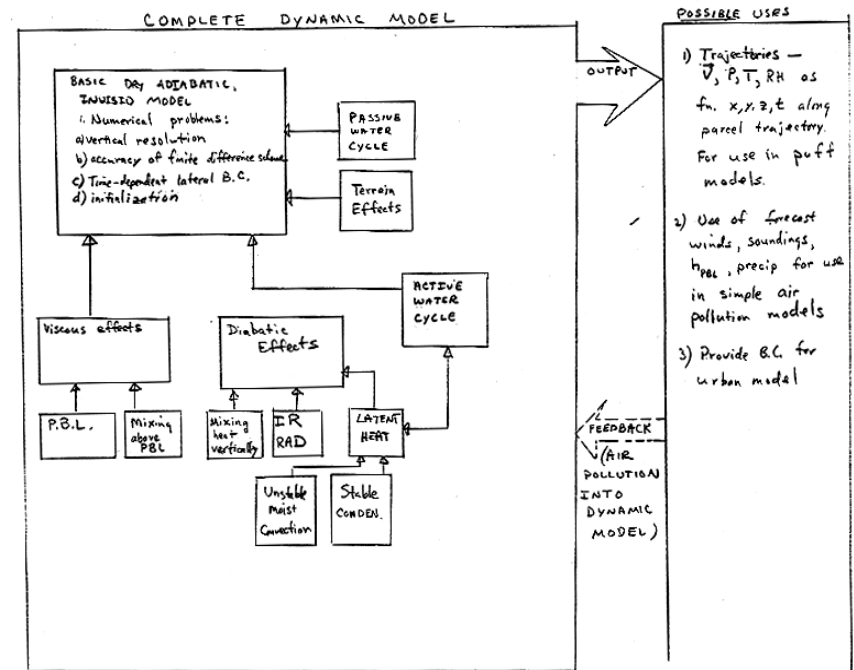 COMPLETE DYNAMIC MODEL
BASIC DRY ADIABATIC,
INVISID MODEL
1. Numerical problems:
a) vertical resolution
b) accuracy of finite difference scheme
c) Time-dependent lateral B.C.
d) initialization
PASSIVE
WATER
CYCLE
Terrain
Effects
ACTIVE
WATER
CYCLE
Viscous effects
Diabatic
Effects
P.B.L.
Mixing
above
PBL
Mixing
heat
vertically
IR
RAD
LATENT
HEAT
Unstable
Moist
Convection
Stable
CONDEN.
OUTPUT
FEEDBACK
(AIR
POLLUTION
INTO
DYNAMIC
MODEL)
POSSIBLE USES
1) Trajectories —
V, P, T, RH as
fn. x, y, z, t along
parcel trajectory.
For use in puff
models.
2) Use of forecast
winds, soundings,
hPBL, precip for use
in simple air
pollution models
3) Provide B.C. for
urban model